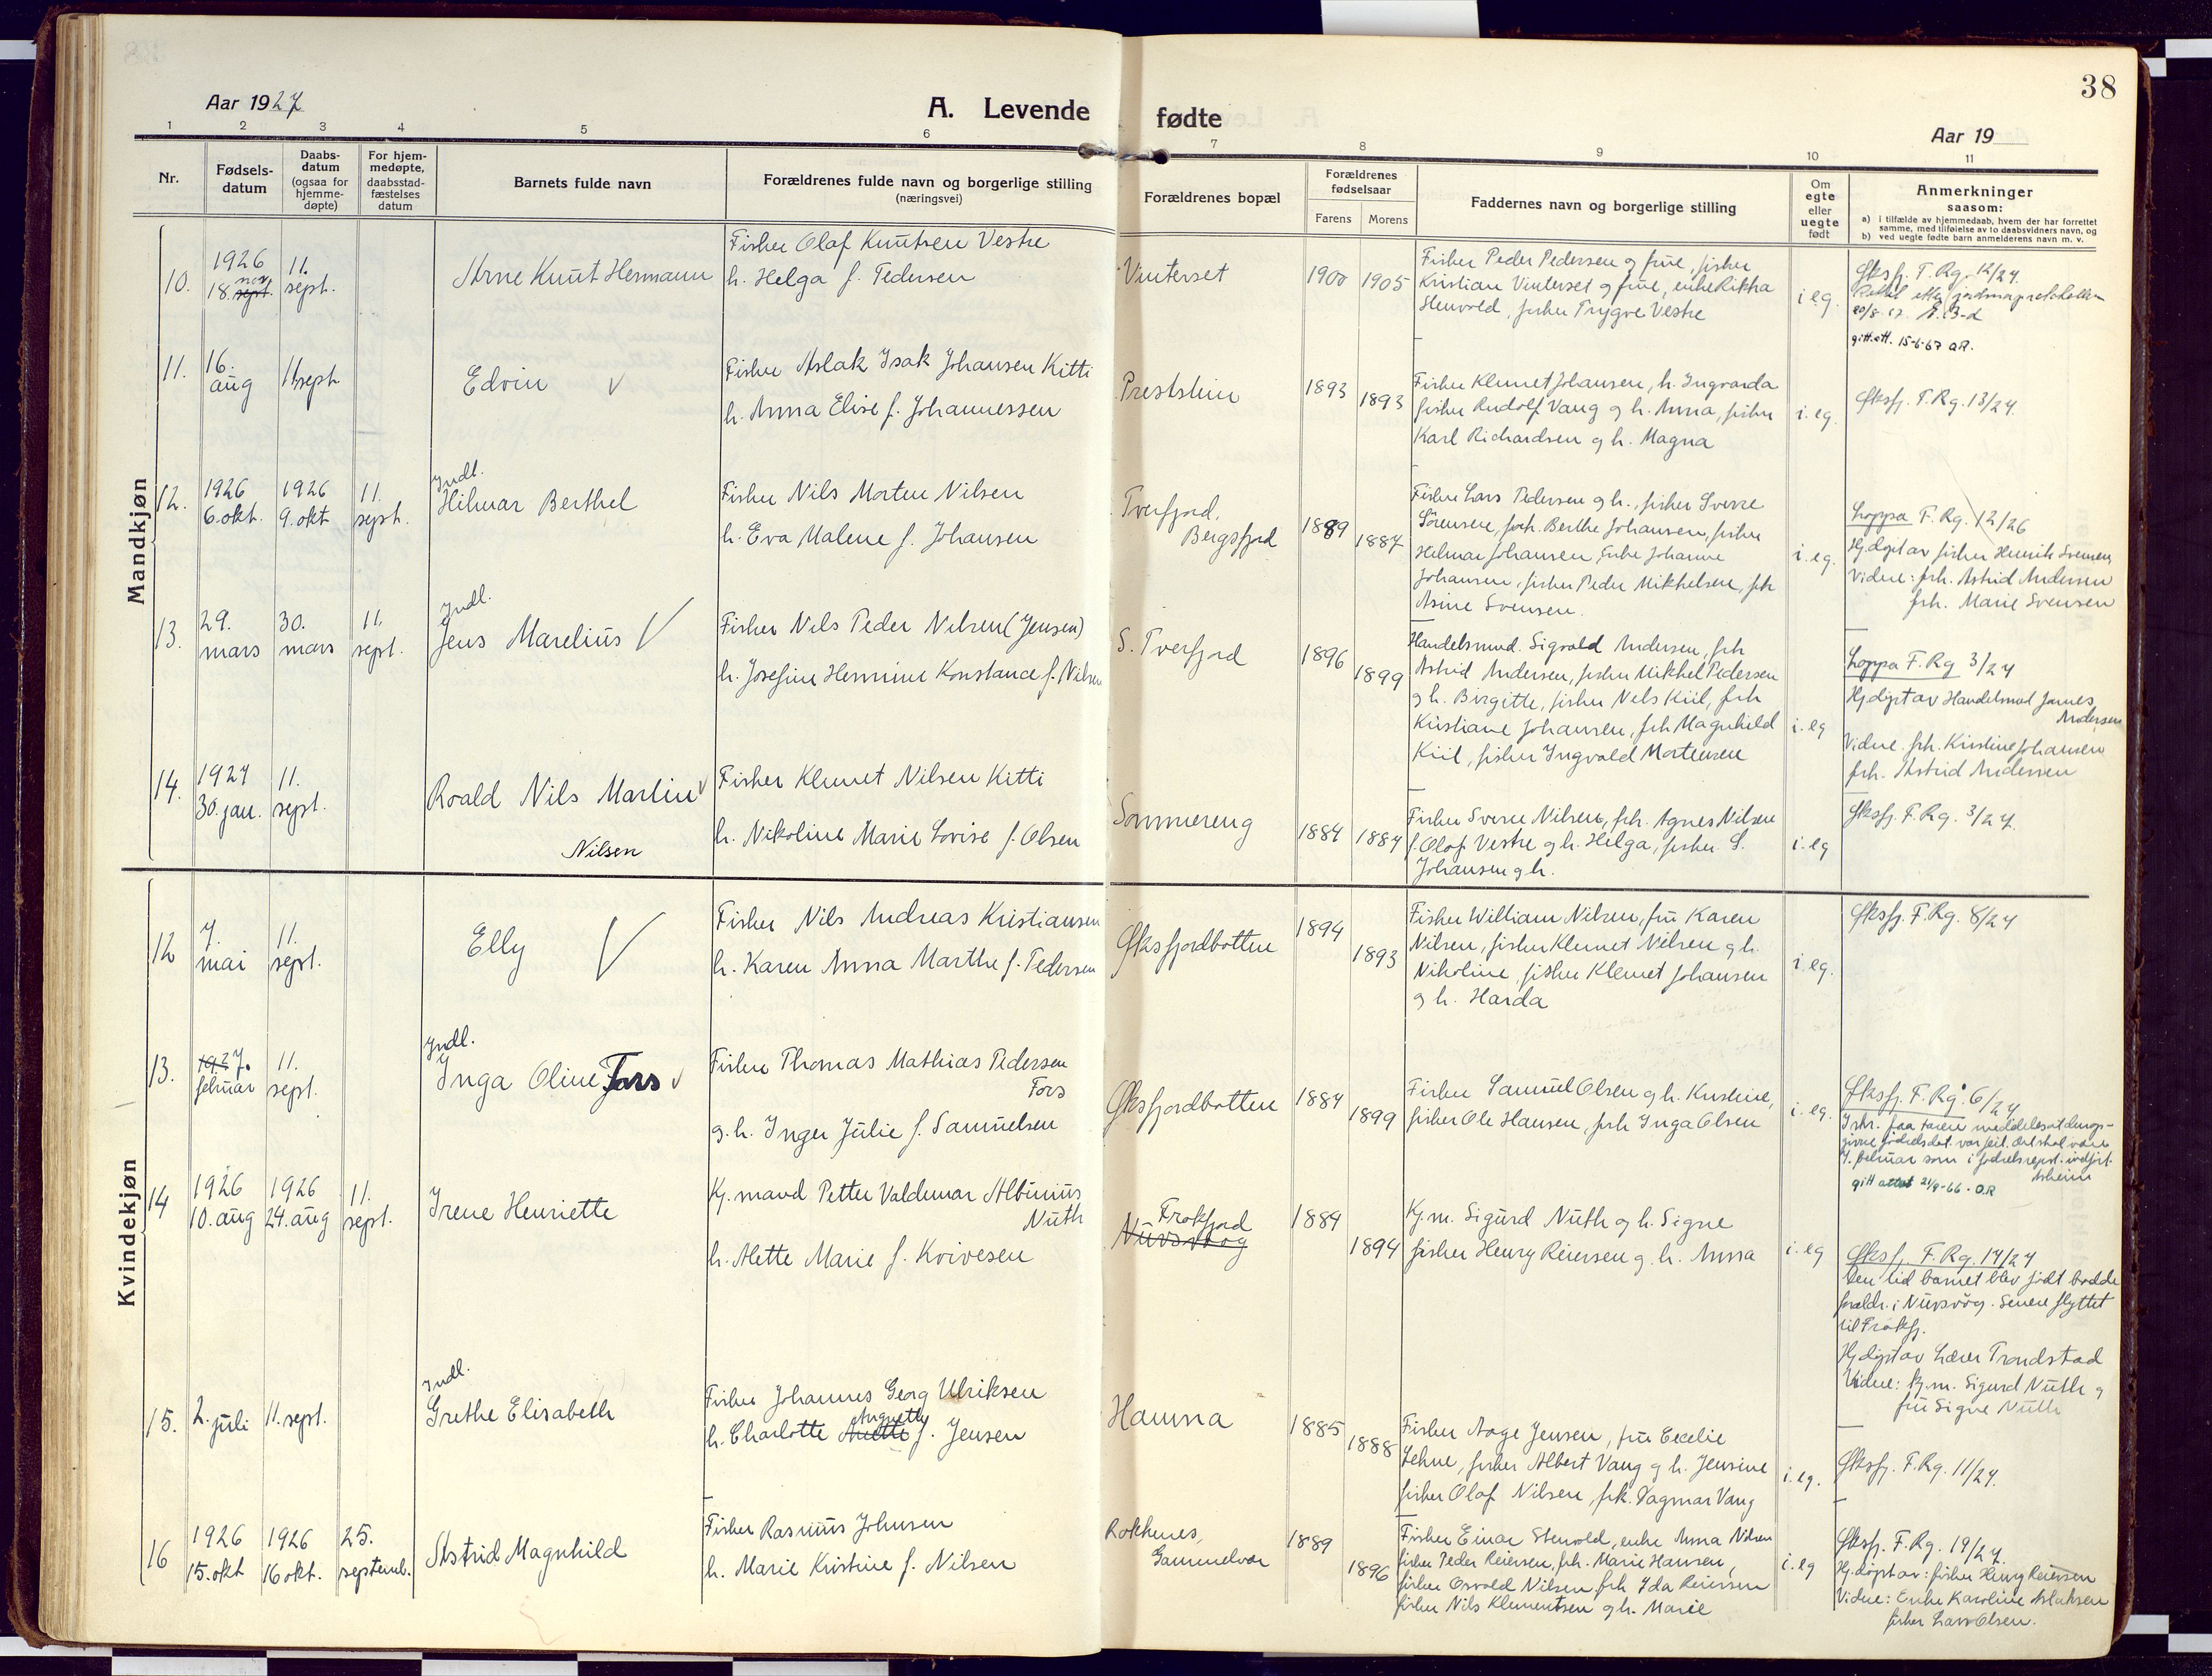 38
Aar 1927
A. Levende fødte
Aar 19
1 2 3 4 5 6 7 8 9 10 11
Nr.
Fødsels-
datum
Daabs-
datum
(ogsaa for
hjemme-
døpte)
For hjem-
medøpte,
daabsstad-
fæstelses
datum
Barnets fulde navn
Forældrenes fulde navn og borgerlige stilling
(næringsvei)
Forældrenes bopæl
Forældrenes
fødselsaar
Farens Morens
Faddernes navn og borgerlige stilling
Om
egte
eller
uegte
født
Anmerkninger
saasom:
a) i tilfælde av hjemmedaab, hvem der har forrettet
samme, med tilføielse av to daabsvidners navn, og
b) ved uegte fødte barn anmelderens navn m. v.
Mandkjøn
10.
1926
18. nov. sept.
11.
sept.
Arne Knut Hermann
Fisker Olaf Knutsen Vestre
h. Helga f. Pedersen
Vinterset
1900 1905
Fisker Peder Pedersen og frue, fisker
Kristian Vinterset og frue, enke Rikka
Stenvold, fisker Trygve Vestre
i eg.
Øksfj. F. Rg. 12/27.
gitt att. 15-6-67 OR.
11.
16.
aug
11 sept
Edvin V
Fisker Aslak Isak Johansen Kitti
h. Anna Elise f. Johannessen
Presteteien
1893 1893
Fisker Klemet Johansen, h. Ingvarda
fisker Rudolf Vang og h. Anna, fisker
Karl Richardsen og h. Magna
i. eg.
Øksfj. F. Rg. 13/27.
12.
1926
6. okt.
1926
9. okt
11.
sept.
Indl.
Hilmar Berthel
Fisker Nils Morten Nilsen
h. Eva Malene f. Johansen
Tverfjord,
Bergsfjord
1889 1887
Fisker Lars Pedersen og h., fisker Sverre
Sörensen, frk. Berthe Johansen, fisker
Hilmar Johansen, Enke Johanne
Johansen, fisker Peder Mikkelsen, frk
Asine Svensen.
i. eg.
Loppa F. Rg. 12/26
Hj.døpt av fisker Henrik Svensen
Vidne: frk. Astrid Andersen
frk. Marie Svensen
13.
29.
mars
30.
mars
11.
sept.
Indl.
Jens Marelius V
Fisker Nils Peder Nilsen (Jensen)
h. Josefine Hermine Konstance f. Nilsen
S. Tverfjord
1896 1899
Handelsmnd. Sigvald Andersen, frk
Astrid Andersen, fisker Mikkel Pedersen
og h. Birgitte, fisker Nels Kiil, frk
Kristiane Johansen, frk Magnhild
Kiil, fisker Ingvald Mortensen
i. eg
Loppa F. Rg 3/27
Hj.døpt av Handelsmnd James
Andersen
Vidne. frk. Kristine Johansen
frk. Astrid Andersen
14.
1927
30. jan.
11.
sept.
Roald Nils Martin V
Nilsen
Fisker Klemet Nilsen Kitti
h. Nikoline Marie Lovise f. Olsen
Sommereng
1884 1887
Fisker Sverre Nilsen, frk. Agnes Nilsen
f. Olaf Vestre og h. Helga, fisker S.
Johansen og h.
i. eg
Øksfj. F. Rg. 3/27.
Kvindekjøn
12
7.
mai
11.
sept.
Elly V
Fisker Nils Andreas Kristiansen
h. Karen Anna Marthe f. Pedersen
Øksfjordbotten
1894 1893
Fisker William Nilsen, fru Karen
Nilsen, fisker Klemet Nilsen og h.
Nikoline, fisker Klemet Johansen
og h. Harda
i. eg.
Øksfj. F. Rg. 8/27
13.
7.
februar
11.
sept.
Indl.
Inga Oline Fors V
Fisker Thomas Mathias Pedersen
Fors
g. h. Inger Julie f. Samuelsen
Øksfjordbotten
1884 1899
Fisker Samuel Olsen og h. Kristine,
fisker Ole Hansen, frk Inga Olsen
i. eg.
Øksfj. F. Rg. 6/27
7. februar som i fødselsregist. indført.
gitt attest 21/9-66. OR
14
1926
10. aug
1926
24. aug
11.
sept.
Irene Henriette
Kj. mand Petter Valdemar Albinius
Nuth
h. Alette Marie f. Kvivesen
Frakfjord
Nuvsvaag
1889 1894
Kj. m. Sigurd Nuth og h. Signe
fisker Henry Reiersen og h. Anna
i. eg
Øksfj. F. Rg. 17/27
Den tid barnet blev født bodde
foreldr. i Nuvsvåg. Senere flyttet
til Frakfj.
Hj døpt av Lærer Trondstad
Vidne: kj. m. Sigurd Nuth og
fru Signe Nuth
15.
2. juli
11. sept.
Indl.
Grethe Elisabeth
Fisker Johannes Georg Ulriksen
h. Charlotte Anette Augusta f. Jensen
Hamna
1885 1888
Fisker Aage Jensen, fru Cecelie
Lehne, fisker Albert Vang og h. Jensine
fisker Olaf Nilsen, frk. Dagmar Vang
i. eg.
Øksfj. F. Rg. 11/27.
16
1926
15. okt
1926
16 okt.
25.
septemb.
Astrid Magnhild
Fisker Rasmus Johnsen
h. Marie Kristine f. Nilsen
Rokknes,
Gammelvær
1889 1896
Fisker Einar Stenvold, enke Anna Nilsen
fisker Peder Reiersen, frk. Marie Hansen,
fisker Osvald Nilsen, frk Ida Reiersen
fisker Nils Klementsen og h. Marie
i. eg
Øksfj. F. Rg. 19/27.
Hj. døpt av: fisker Henry Reiersen
Vidne: Enke Karoline Aslaksen
fisker Lars Olsen.